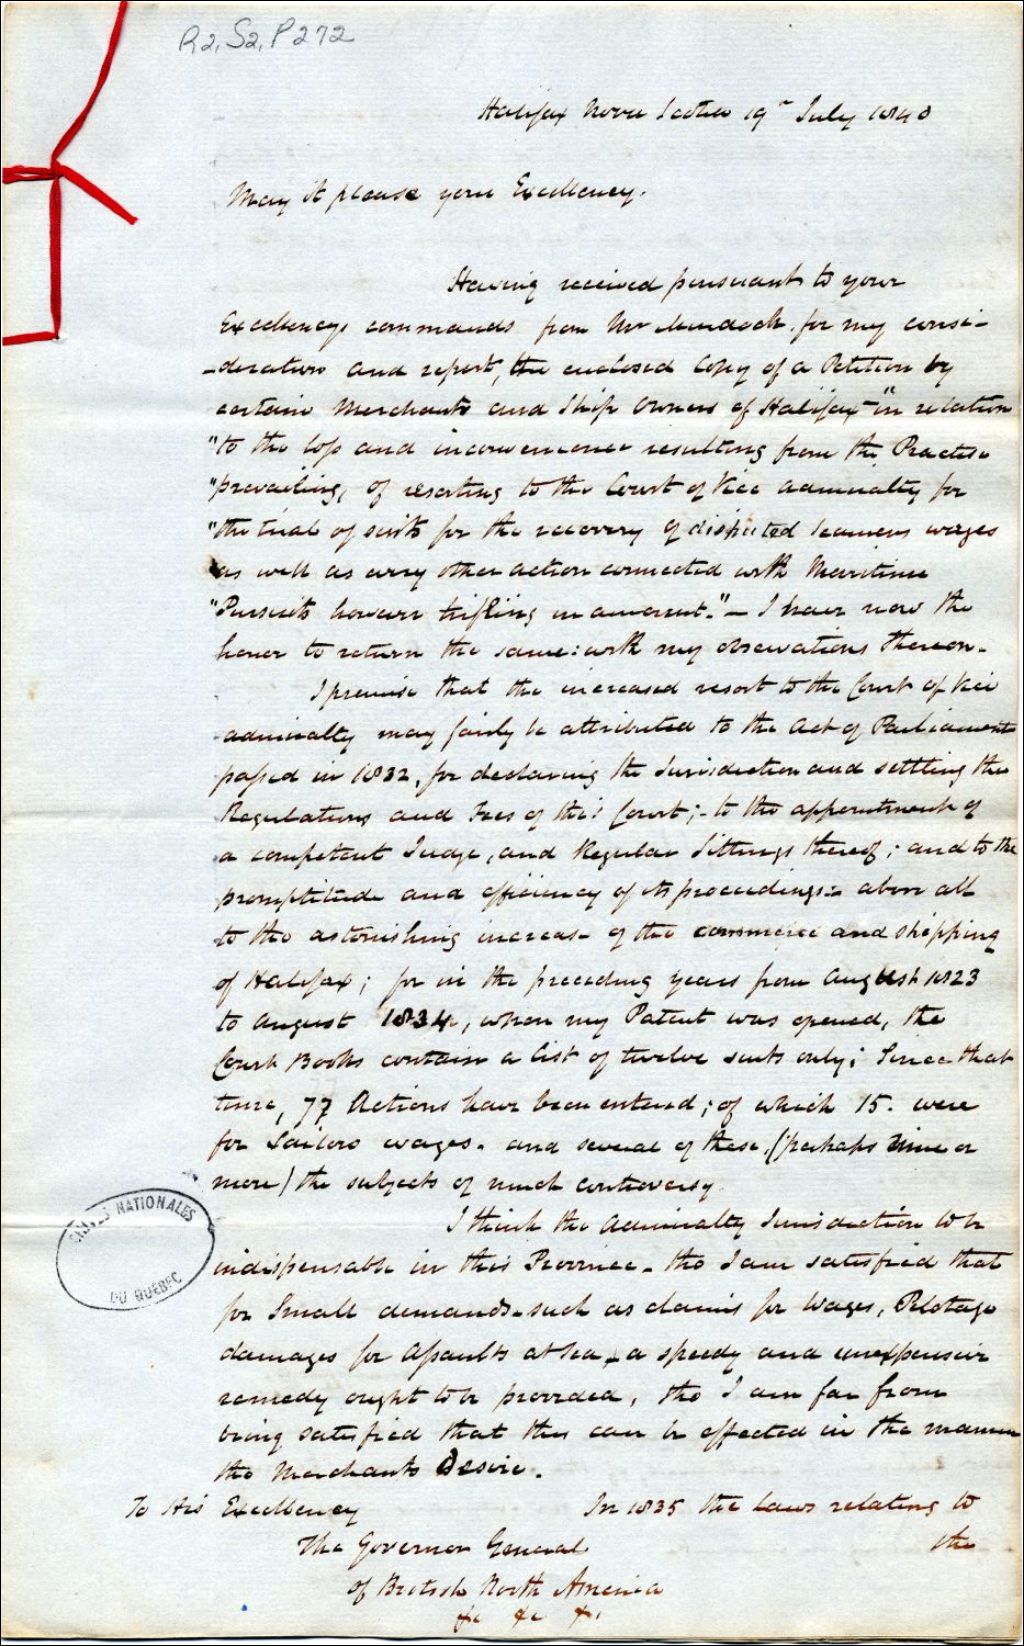 R2, S2, P272
Halifax Nova Scotia 19th July 1840
May it please your Excellency.
Having received pursuant to your
Excellencys commands from Mr Murdoch. for my consi-
-deration and report, the enclosed Copy of a Petition by
certain Merchants and Ship Owners of Halifax "in relation
"to the loss and inconvenience resulting from the Practise
"prevailing, of resorting to the Court of Vice admiralty for
"the trial of suits for the recovery of disputed seamens wages
"as well as every other action connected with Maritime
"Pursuits however trifling in amount." - I have now the
honor to return the same: with my observations thereon.
I premise that the increased resort to the Court of Vice
admiralty may fairly be attributed to the Act of Parliament
passed in 1832, for declaring the Jurisdiction and settling the
Regulations and Fees of this Court; - to the appointment of
a competent Judge, and Regular Sittings thereof; and to the
promptitude and efficiency of its proceedings: - above all
to the astonishing increase of the commerce and shipping
of Halifax; for in the preceding years from August 1823
to August 1834, when my Patent was opened, the
Court Books contain a list of twelve suits only; Since that
time, 77 Actions have been entered; of which 15. were
for Sailors wages. and several of these, (perhaps nine or
more) the subjects of much controversy
I think the Admiralty Jurisdiction to be
indispensable in this Province - tho I am satisfied that
for Small demands - such as claims for Wages, Pilotage
damages for Assaults at Sea - a speedy and unexpensive
remedy ought to be provided, tho I am far from
being satisfied that this can be effected in the manner
the Merchants Desire.
In 1835 the Laws relating to
the
To His Excellency
The Governor General
of British North America
&c &c &c
NATIONALES
DU QUÉBEC